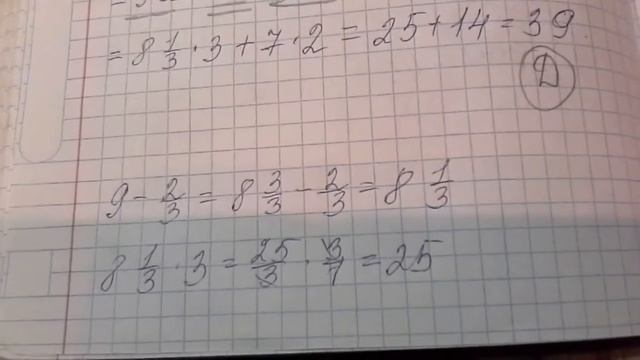 = 8 1/3 · 3 + 7 · 2 = 25 + 14 = 39
Д
9 - 2/3 = 8 3/3 - 2/3 = 8 1/3
8 1/3 · 3 = 25/3 · 3/1 = 25